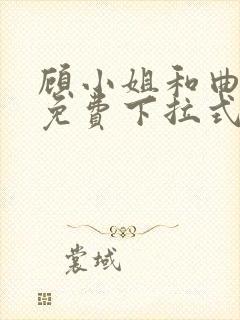 顾小姐和曲
免费下拉式
裳域